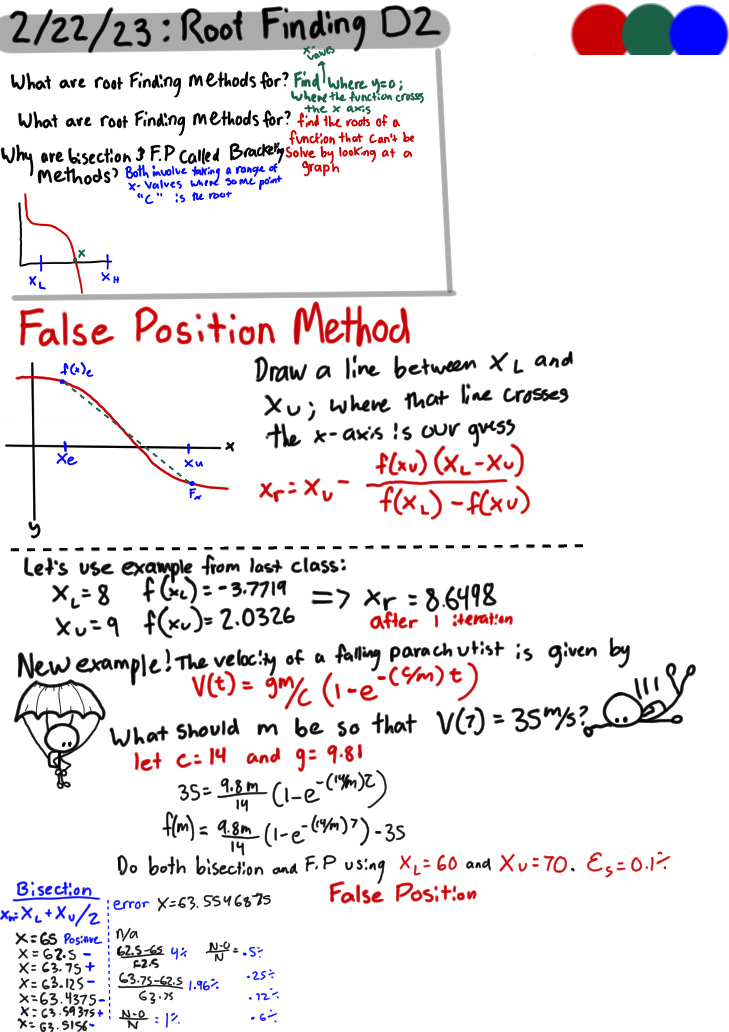 2/22/23: Root Finding D2
What are root Finding methods for? Find where y=0;
x-values
where the function crosses
the x axis
What are root Finding methods for? find the roots of a
function that can't be
solve by looking at a
graph
Why are bisection & F.P called Bracketing
Methods? Both involve taking a range of
x-values where some point
"C" is the root
x
XL
XH
False Position Method
f(x)e
x
Xe
Xu
Fx
y
Draw a line between XL and
XU; where that line crosses
the x-axis is our guess
xr = XU - f(xU)(XL-XU) / f(XL)-f(XU)
Let's use example from last class:
XL=8 f(XL)=-3.7719 => Xr = 8.6498
XU=9 f(XU)=2.0326 after 1 iteration
New example! The velocity of a falling parachutist is given by
V(t) = gm/c (1-e^-(c/m)t)
What should m be so that V(7) = 35m/s?
let c=14 and g=9.81
35= 9.8m/14 (1-e^-(14/m)7)
f(m) = 9.8m/14 (1-e^-(14/m)7)-35
Do both bisection and F.P using XL=60 and XU=70. Es=0.1%
Bisection
False Position
XL+XU/2
error X=63.5546875
X=65 Positive
n/a
X=62.5 -
62.5-65/62.5 4%
N-O/N = .5%
X=63.75 +
X=63.125 -
63.75-62.5/63.75 1.96%
.25%
X=63.4375 -
.12%
X=63.59375+
N-O/N = 1%
.6%
X=63.5156-